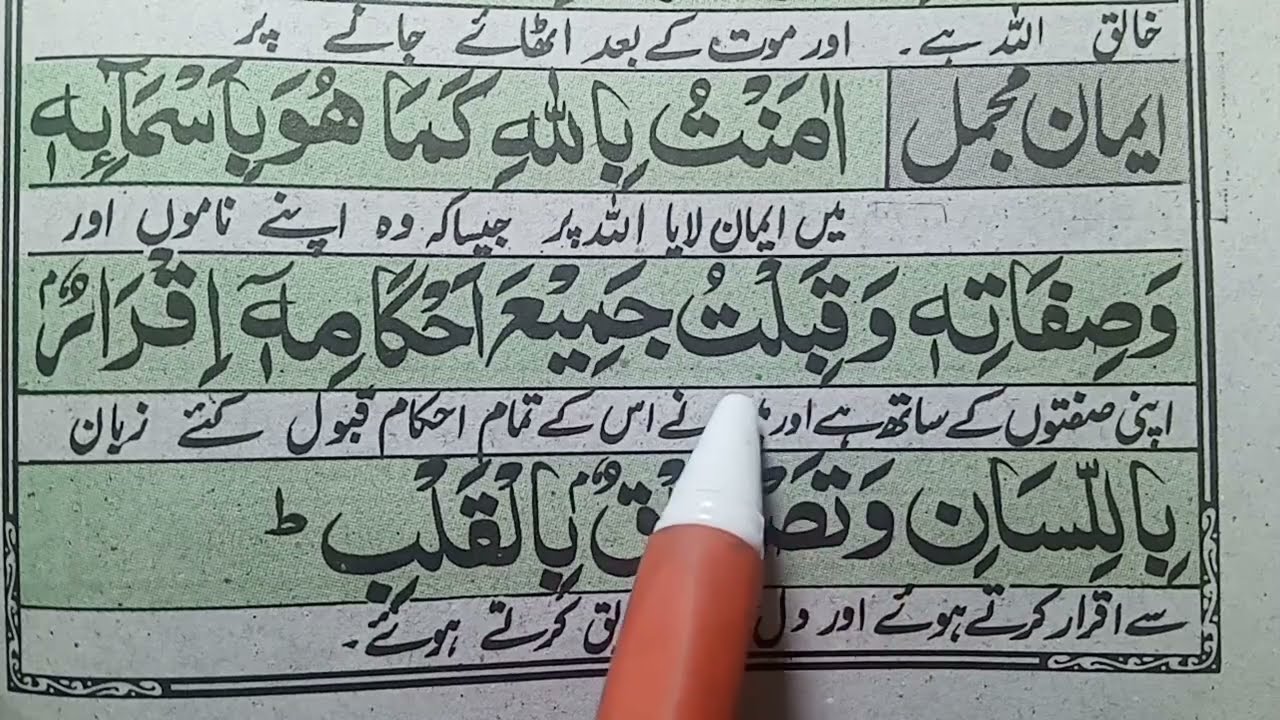 خالق اللہ ہے۔ اور موت کے بعد اٹھائے جانے پر
ایمان مجمل
اٰمَنْتُ بِاللّٰهِ كَمَا هُوَ بِاَسْمَآئِهٖ
میں ایمان لایا اللہ پر جیسا کہ وہ اپنے ناموں اور
وَصِفَاتِهٖ وَقَبِلْتُ جَمِيْعَ اَحْكَامِهٖٓ اِقْرَارٌۢ
اپنی صفتوں کے ساتھ ہے اور نے اس کے تمام احکام قبول کئے زبان
بِاللِّسَانِ وَ بِالْقَلْبِ ؕ
سے اقرار کرتے ہوئے اور دل کرتے ہوئے۔